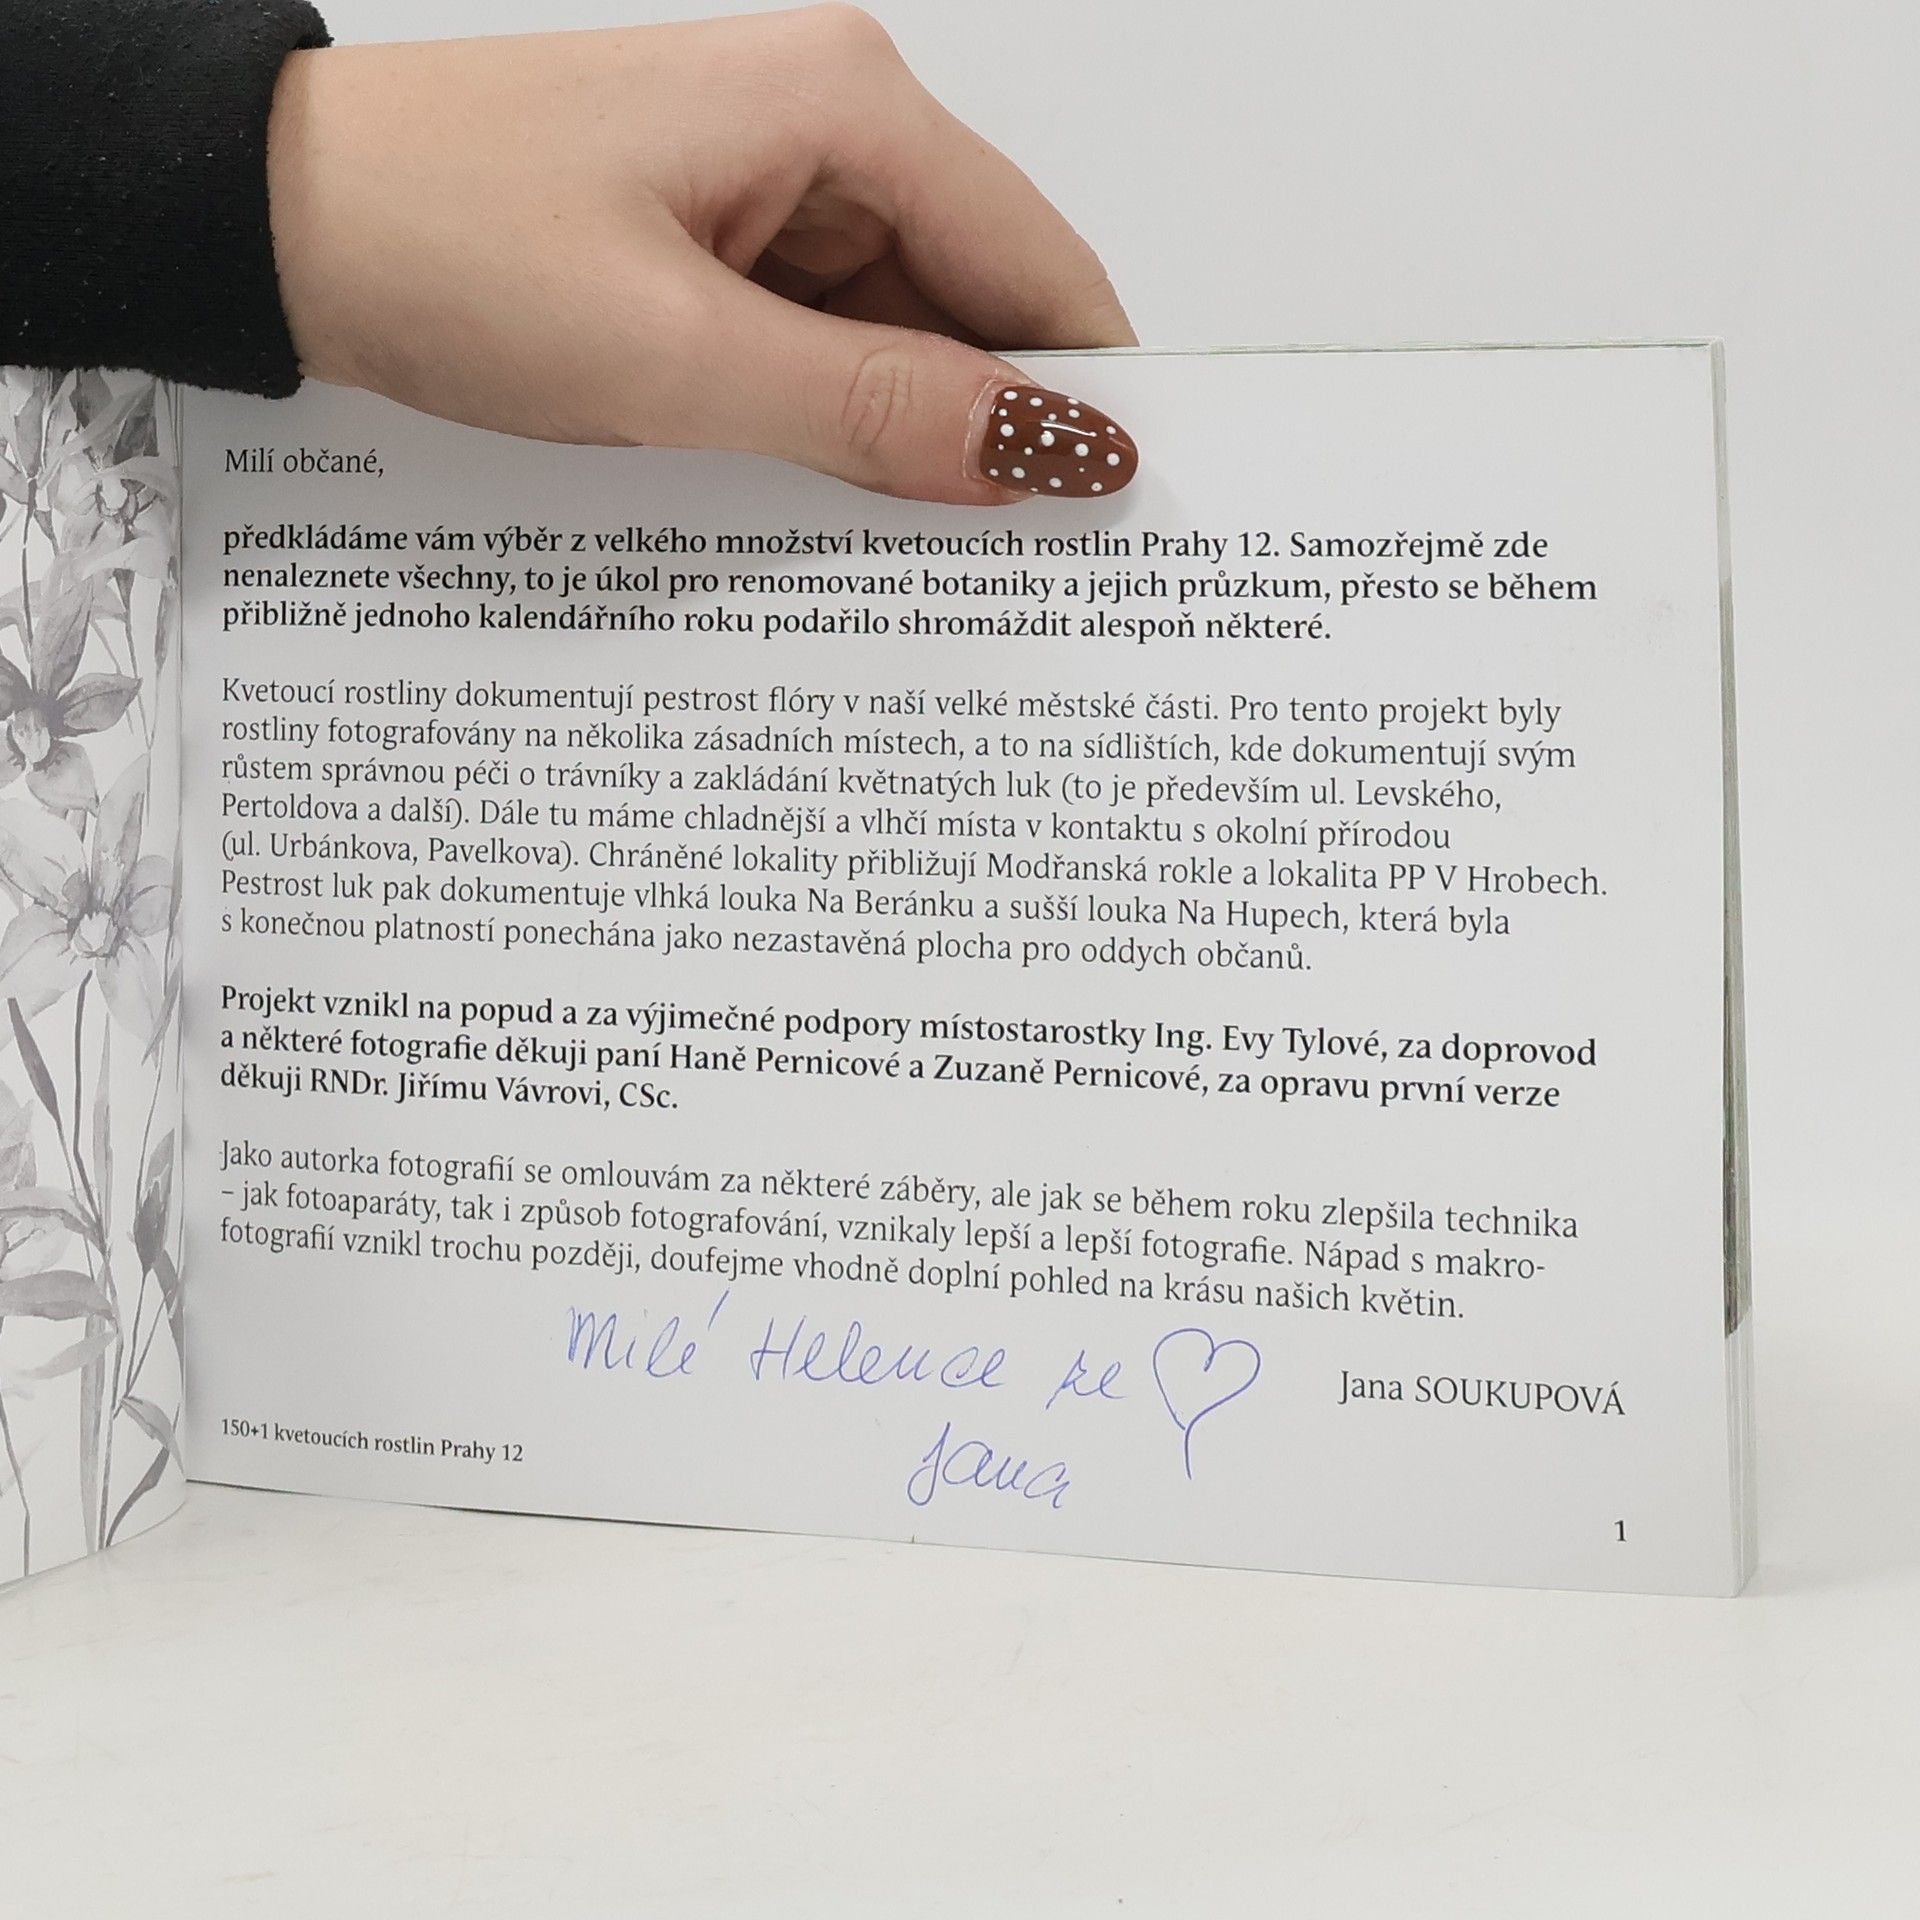 Milí občané,
předkládáme vám výběr z velkého množství kvetoucích rostlin Prahy 12. Samozřejmě zde
nenaleznete všechny, to je úkol pro renomované botaniky a jejich průzkum, přesto se během
přibližně jednoho kalendářního roku podařilo shromáždit alespoň některé.
Kvetoucí rostliny dokumentují pestrost flóry v naší velké městské části. Pro tento projekt byly
rostliny fotografovány na několika zásadních místech, a to na sídlištích, kde dokumentují svým
růstem správnou péči o trávníky a zakládání květnatých luk (to je především ul. Levského,
Pertoldova a další). Dále tu máme chladnější a vlhčí místa v kontaktu s okolní přírodou
(ul. Urbánkova, Pavelkova). Chráněné lokality přibližují Modřanská rokle a lokalita PP V Hrobech.
Pestrost luk pak dokumentuje vlhká louka Na Beránku a sušší louka Na Hupech, která byla
s konečnou platností ponechána jako nezastavěná plocha pro oddych občanů.
Projekt vznikl na popud a za výjimečné podpory místostarostky Ing. Evy Tylové, za doprovod
a některé fotografie děkuji paní Haně Pernicové a Zuzaně Pernicové, za opravu první verze
děkuji RNDr. Jiřímu Vávrovi, CSc.
Jako autorka fotografií se omlouvám za některé záběry, ale jak se během roku zlepšila technika
– jak fotoaparáty, tak i způsob fotografování, vznikaly lepší a lepší fotografie. Nápad s makro-
fotografií vznikl trochu později, doufejme vhodně doplní pohled na krásu našich květin.
Milé Helence ze
Jana SOUKUPOVÁ
Jana
150+1 kvetoucích rostlin Prahy 12
1